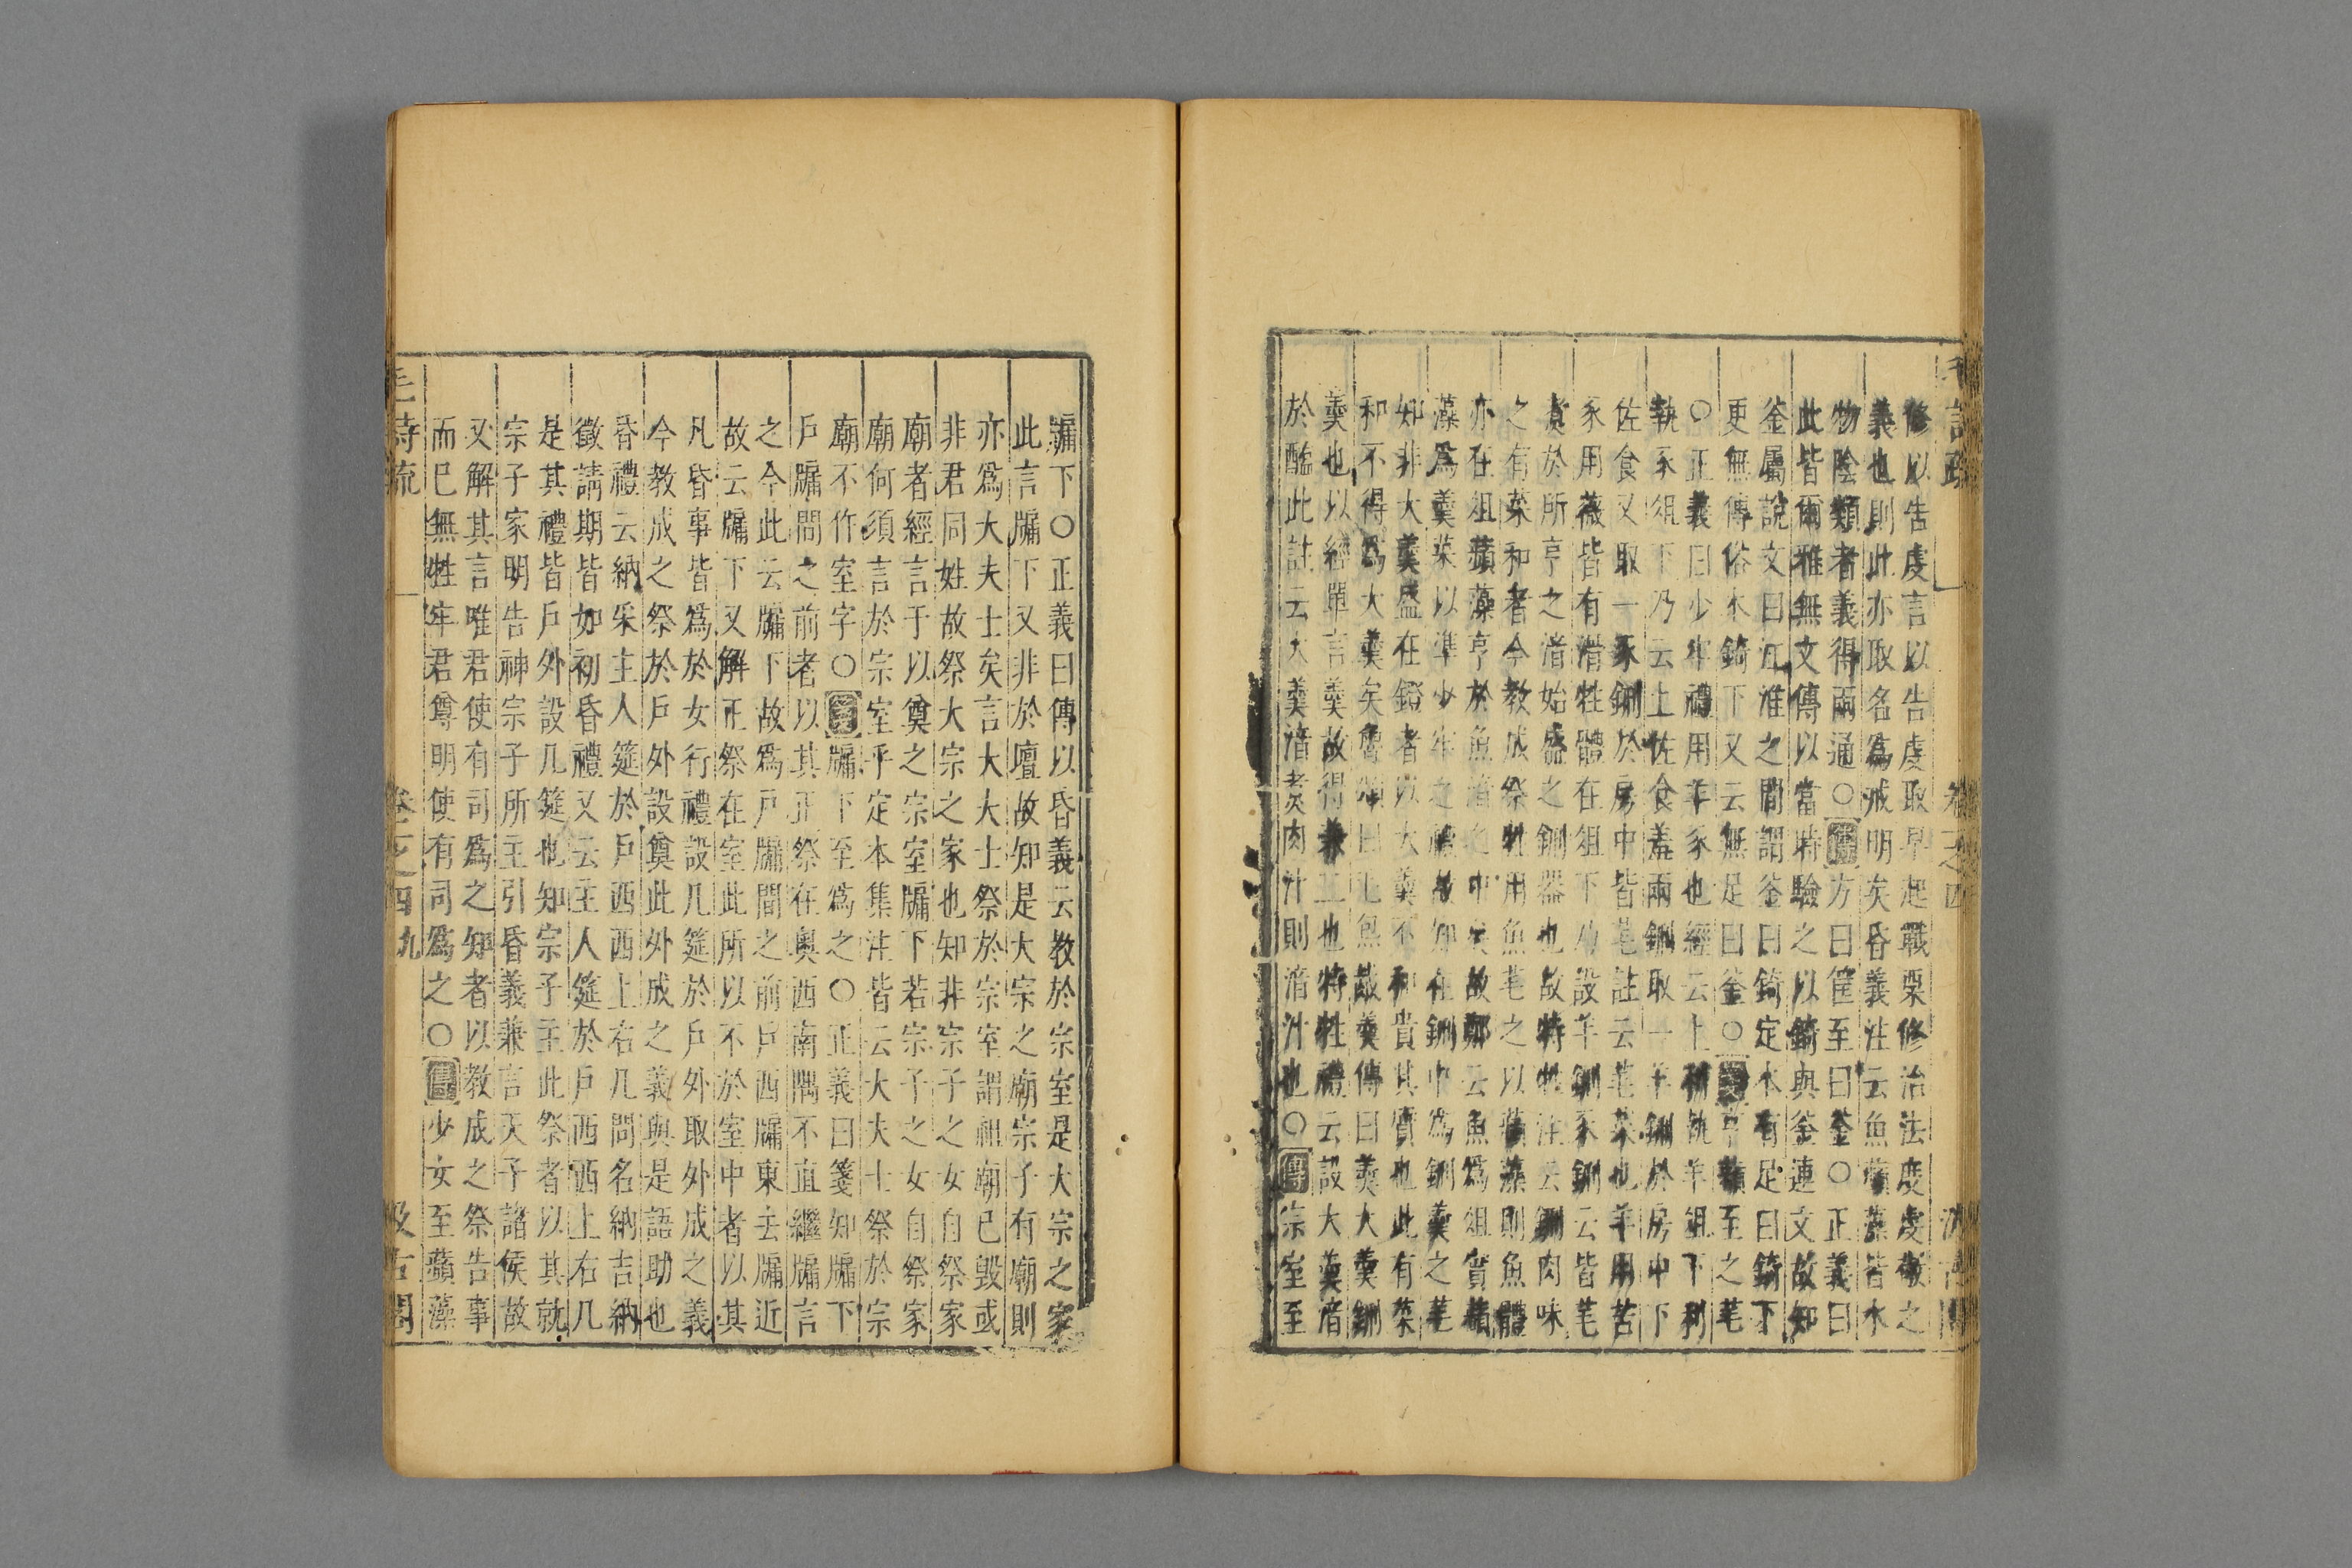 修以告虔言以告虔取早起戰栗修治法度虔敬之
義也則此亦取名爲戒明矣昏義注云魚蘋藻皆水
物陰類者義得兩通○傳方曰筐至曰釜○正義曰
此皆爾雅無文傳以當時驗之以錡與釜連文故知
釜屬說文曰江淮之間謂釜曰錡定本有足曰錡下
更無傳俗本錡下又云無足曰釜○箋亨蘋至之芼
○正義曰少牢禮用羊豕也經云上利執羊俎下利
執豕俎下乃云上佐食羞兩鉶取一羊鉶於房中下
佐食又取一豕鉶於房中皆芼註云芼菜也羊用苦
豕用薇皆有滑牲體在俎下乃設羊鉶豕鉶云皆芼
煑於所亨之湆始盛之鉶器也故特牲注云鉶肉味
之有菜和者今教成祭牲用魚芼之以蘋藻則魚體
亦在俎蘋藻亨於魚湆之中矣故鄭云魚爲俎實蘋
藻爲羹菜以準少牢之禮故知在鉶中爲鉶羹之芼
知非大羹盛在鐙者以大羹不和貴其質也此有菜
和不得爲大羹矣魯頌曰毛炰胾羹傳曰羹大羹鉶
羹也以經單言羹故得兼二也特牲禮云設大羹湆
於醢此註云大羹湆煑肉汁則湆汁也○傳宗室至
毛詩疏 卷一之四 汲古閣
牖下○正義曰傳以昏義云教於宗室是大宗之家
此言牖下又非於壇故知是大宗之廟宗子有廟則
亦爲大夫士矣言大夫士祭於宗室謂祖廟已毀或
非君同姓故祭大宗之家也知非宗子之女自祭家
廟者經言于以奠之宗室牖下若宗子之女自祭家
廟何須言於宗室乎定本集注皆云大夫士祭於宗
廟不作室字○箋牖下至爲之○正義曰箋知牖下
戶牖間之前者以其正祭在奧西南隅不直繼牖言
之今此云牖下故爲戶牖間之前戶西牖東去牖近
故云牖下又解正祭在室此所以不於室中者以其
凡昏事皆爲於女行禮設几筵於戶外取外成之義
今教成之祭於戶外設奠此外成之義與是語助也
昏禮云納采主人筵於戶西西上右几問名納吉納
徵請期皆如初昏禮又云主人筵於戶西西上右几
是其禮皆戶外設几筵也知宗子主此祭者以其就
宗子家明告神宗子所主引昏義兼言天子諸侯故
又解其言唯君使有司爲之知者以教成之祭告事
而已無牲牢君尊明使有司爲之○傳少女至蘋藻
毛詩疏 卷一之四 九 汲古閣